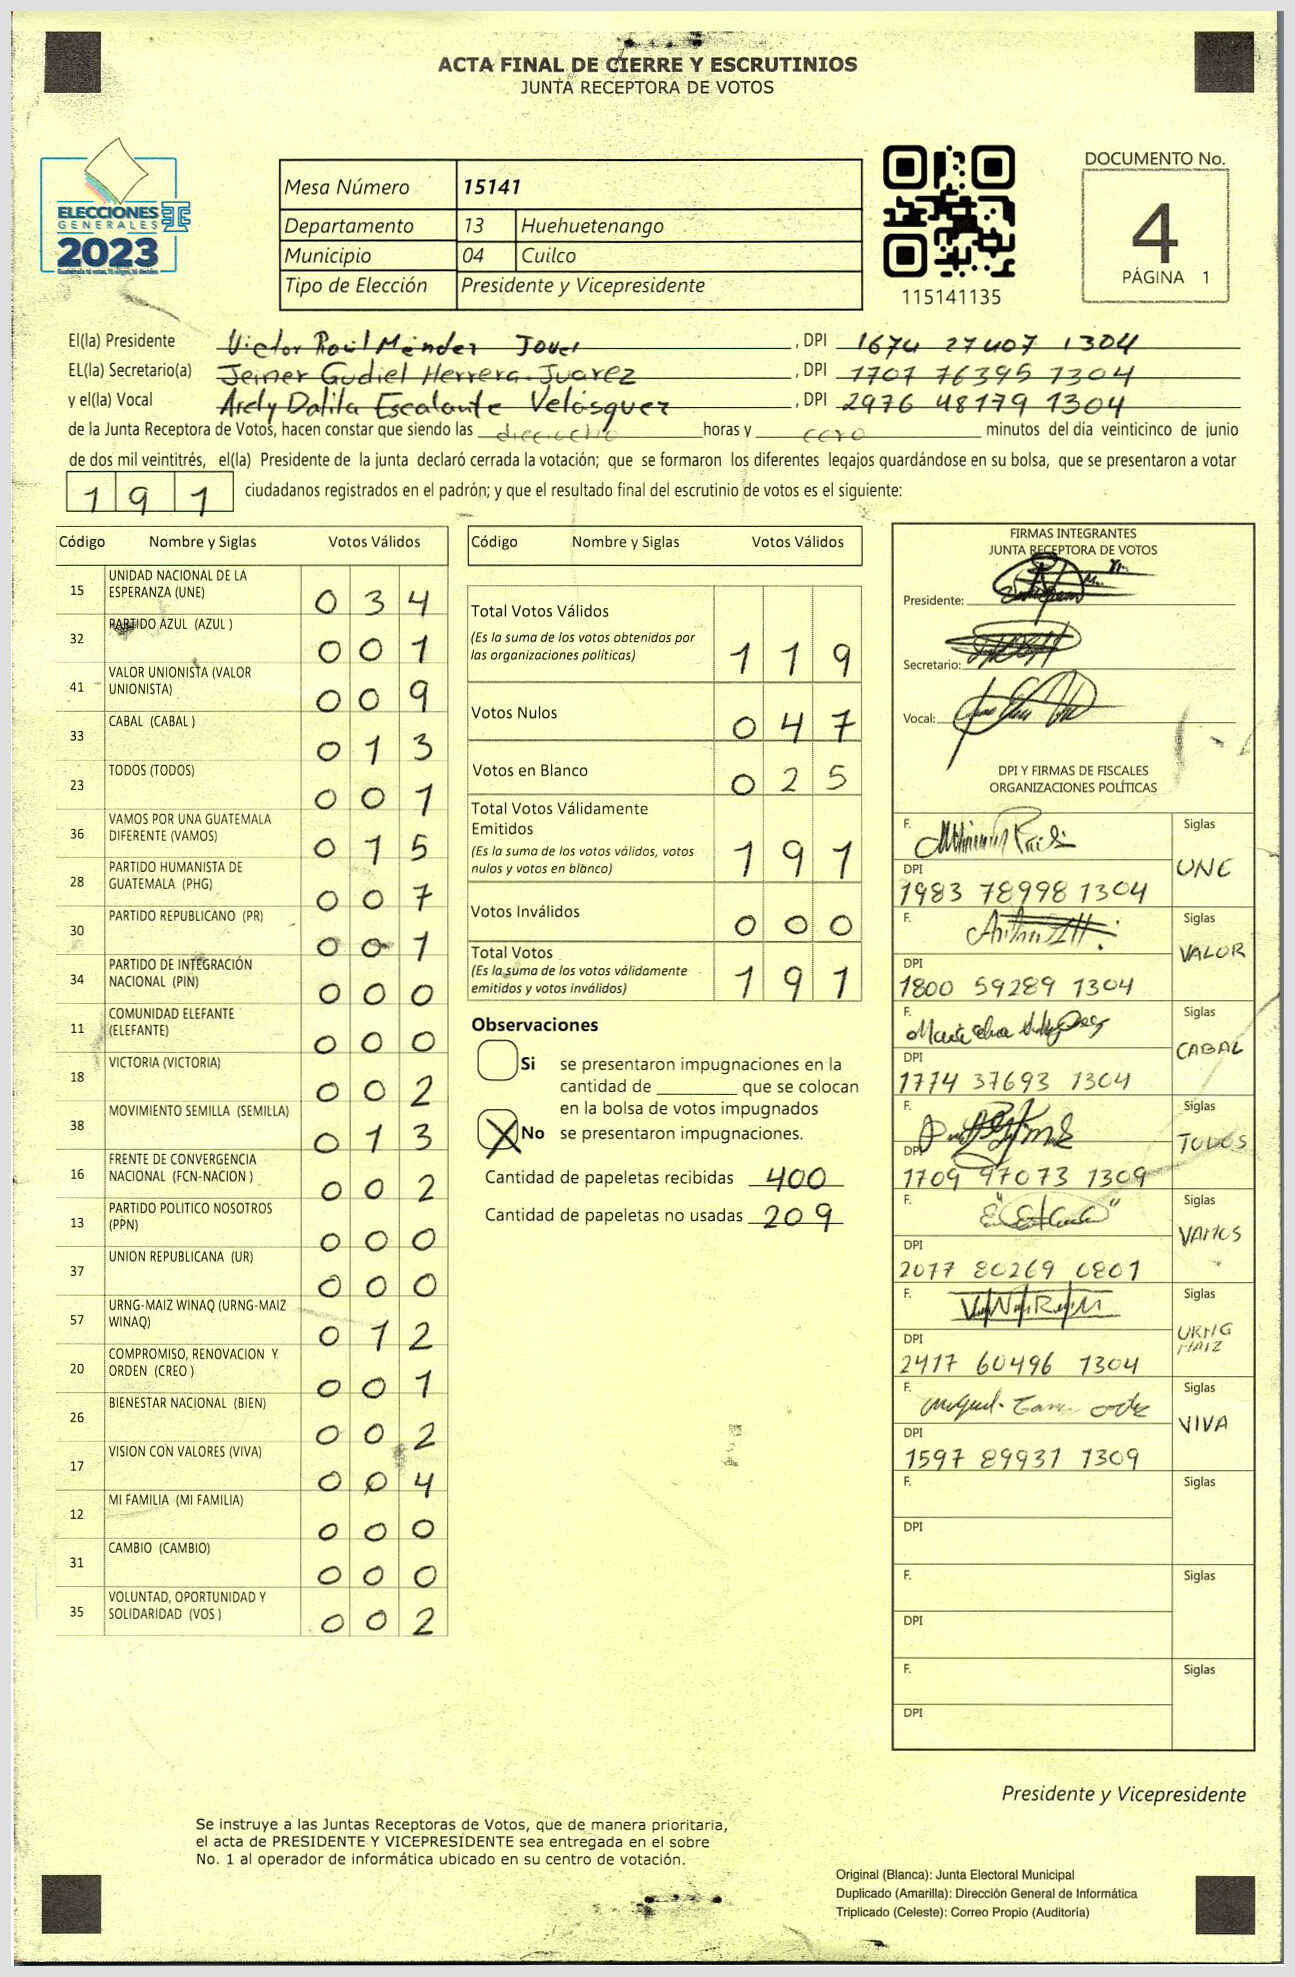 ACTA FINAL DE CIERRE Y ESCRUTINIOS
JUNTA RECEPTORA DE VOTOS
ELECCIONES
GENERALES
2023
Mesa Número 15141
Departamento 13 Huehuetenango
Municipio 04 Cuilco
Tipo de Elección Presidente y Vicepresidente
115141135
DOCUMENTO No.
4
PÁGINA 1
El(la) Presidente Victor Raúl Méndez , DPI 1674 27407 1304
EL(la) Secretario(a) Jeiner Gudiel Herrera Juarez , DPI 1707 76395 1304
y el(la) Vocal Arely Dalila Escalante Velásquez , DPI 2976 48179 1304
de la Junta Receptora de Votos, hacen constar que siendo las dieciocho horas y cero minutos del día veinticinco de junio
de dos mil veintitrés, el(la) Presidente de la junta declaró cerrada la votación; que se formaron los diferentes legajos guardándose en su bolsa, que se presentaron a votar
191 ciudadanos registrados en el padrón; y que el resultado final del escrutinio de votos es el siguiente:
Código Nombre y Siglas Votos Válidos
15 UNIDAD NACIONAL DE LA ESPERANZA (UNE) 034
32 PARTIDO AZUL (AZUL ) 001
41 VALOR UNIONISTA (VALOR UNIONISTA) 009
33 CABAL (CABAL ) 013
23 TODOS (TODOS) 001
36 VAMOS POR UNA GUATEMALA DIFERENTE (VAMOS) 015
28 PARTIDO HUMANISTA DE GUATEMALA (PHG) 007
30 PARTIDO REPUBLICANO (PR) 001
34 PARTIDO DE INTEGRACIÓN NACIONAL (PIN) 000
11 COMUNIDAD ELEFANTE (ELEFANTE) 000
18 VICTORIA (VICTORIA) 002
38 MOVIMIENTO SEMILLA (SEMILLA) 013
16 FRENTE DE CONVERGENCIA NACIONAL (FCN-NACION ) 002
13 PARTIDO POLITICO NOSOTROS (PPN) 000
37 UNION REPUBLICANA (UR) 000
57 URNG-MAIZ WINAQ (URNG-MAIZ WINAQ) 012
20 COMPROMISO, RENOVACION Y ORDEN (CREO ) 001
26 BIENESTAR NACIONAL (BIEN) 002
17 VISION CON VALORES (VIVA) 004
12 MI FAMILIA (MI FAMILIA) 000
31 CAMBIO (CAMBIO) 000
35 VOLUNTAD, OPORTUNIDAD Y SOLIDARIDAD (VOS ) 002
Código Nombre y Siglas Votos Válidos
Total Votos Válidos 119
(Es la suma de los votos obtenidos por
las organizaciones políticas)
Votos Nulos 047
Votos en Blanco 025
Total Votos Válidamente
Emitidos 191
(Es la suma de los votos válidos, votos
nulos y votos en blanco)
Votos Inválidos 000
Total Votos 191
(Es la suma de los votos válidamente
emitidos y votos inválidos)
Observaciones
Si se presentaron impugnaciones en la
cantidad de ________ que se colocan
en la bolsa de votos impugnados
X No se presentaron impugnaciones.
Cantidad de papeletas recibidas 400
Cantidad de papeletas no usadas 209
FIRMAS INTEGRANTES
JUNTA RECEPTORA DE VOTOS
Presidente:
Secretario:
Vocal:
DPI Y FIRMAS DE FISCALES
ORGANIZACIONES POLÍTICAS
F. Siglas UNE
DPI 1983 78998 1304
F. Siglas VALOR
DPI 1800 59289 1304
F. Siglas CABAL
DPI 1774 37693 1304
F. Siglas TODOS
DPI 1709 97073 1309
F. Siglas VAMOS
DPI 2077 80269 0801
F. Siglas URNG MAIZ
DPI 2417 60496 1304
F. Siglas VIVA
DPI 1597 89931 1309
F. Siglas
DPI
F. Siglas
DPI
F. Siglas
DPI
Presidente y Vicepresidente
Se instruye a las Juntas Receptoras de Votos, que de manera prioritaria,
el acta de PRESIDENTE Y VICEPRESIDENTE sea entregada en el sobre
No. 1 al operador de informática ubicado en su centro de votación.
Original (Blanca): Junta Electoral Municipal
Duplicado (Amarilla): Dirección General de Informática
Triplicado (Celeste): Correo Propio (Auditoría)